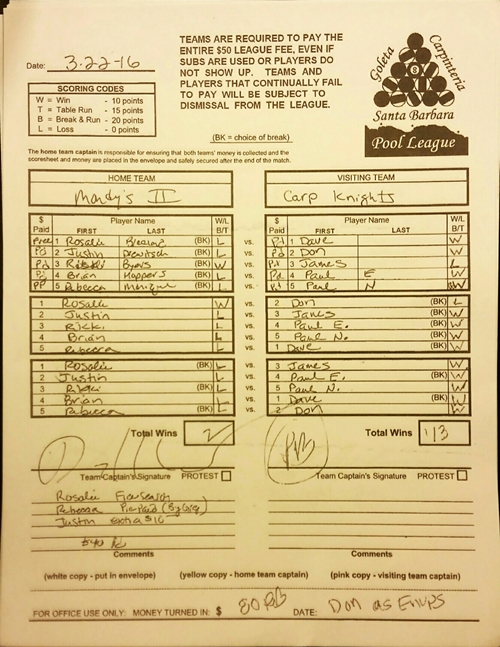 Date: 3-22-16
TEAMS ARE REQUIRED TO PAY THE
ENTIRE $50 LEAGUE FEE, EVEN IF
SUBS ARE USED OR PLAYERS DO
NOT SHOW UP. TEAMS AND
PLAYERS THAT CONTINUALLY FAIL
TO PAY WILL BE SUBJECT TO
DISMISSAL FROM THE LEAGUE.
Goleta
Carpinteria
8
Santa Barbara
Pool League
SCORING CODES
W = Win - 10 points
T = Table Run - 15 points
B = Break & Run - 20 points
L = Loss - 0 points
(BK = choice of break)
The home team captain is responsible for ensuring that both teams' money is collected and the
scoresheet and money are placed in the envelope and safely secured after the end of the match.
HOME TEAM
Mandy's II
VISITING TEAM
Carp Knights
$ Paid Player Name FIRST LAST W/L B/T
$ Paid Player Name FIRST LAST W/L B/T
1 Rosalie (BK) L vs. Pd 1 Dave W
Pd 2 Justin L vs. Pd 2 Don (BK) W
Pd 3 Byers (BK) W vs. Pd 3 James L
Pd 4 Brian Hoppers (BK) L vs. Pd 4 Paul E W
PP 5 Rebecca (BK) L vs. Pd 5 Paul N W
1 Rosalie W vs. 2 Don (BK) L
2 Justin L vs. 3 James (BK) W
3 Rikki L vs. 4 Paul E. (BK) W
4 Brian L vs. 5 Paul N. (BK) W
5 Rebecca L vs. 1 Dave (BK) W
1 Rosalie (BK) L vs. 3 James W
2 Justin L vs. 4 Paul E. (BK) W
3 Rikki (BK) L vs. 5 Paul N. W
4 Brian L vs. 1 Dave (BK) W
5 Rebecca (BK) L vs. 2 Don W
Total Wins 2
Total Wins 13
Team Captain's Signature PROTEST
Team Captain's Signature PROTEST
Rosalie
Rebecca
Justin extra $10
$40
Comments
Comments
(white copy - put in envelope) (yellow copy - home team captain) (pink copy - visiting team captain)
FOR OFFICE USE ONLY: MONEY TURNED IN: $ 80 DATE: Don as